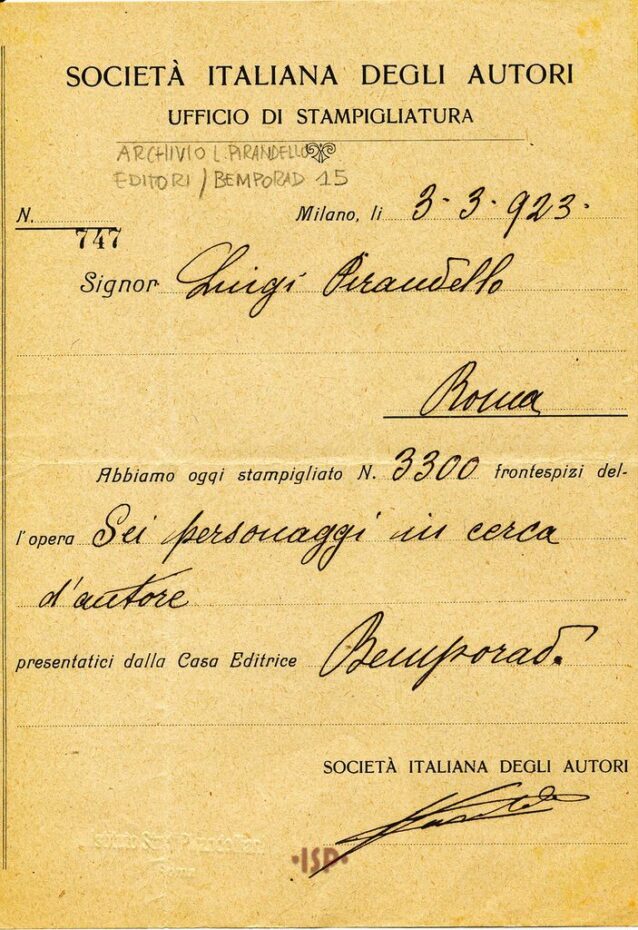 SOCIETÀ ITALIANA DEGLI AUTORI
UFFICIO DI STAMPIGLIATURA
ARCHIVIO L. PIRANDELLO
EDITORI / BEMPORAD 15
N. 747
Milano, li 3-3-923.
Signor Luigi Pirandello
Roma
Abbiamo oggi stampigliato N. 3300 frontespizi del-
l'opera Sei personaggi in cerca
d'autore
presentatici dalla Casa Editrice Bemporad.
SOCIETÀ ITALIANA DEGLI AUTORI
·ISP·